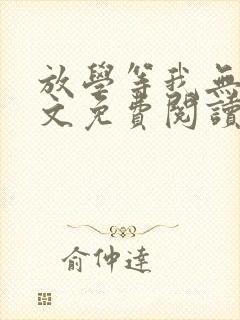 放學等我無
文免費閱讀
俞仲達